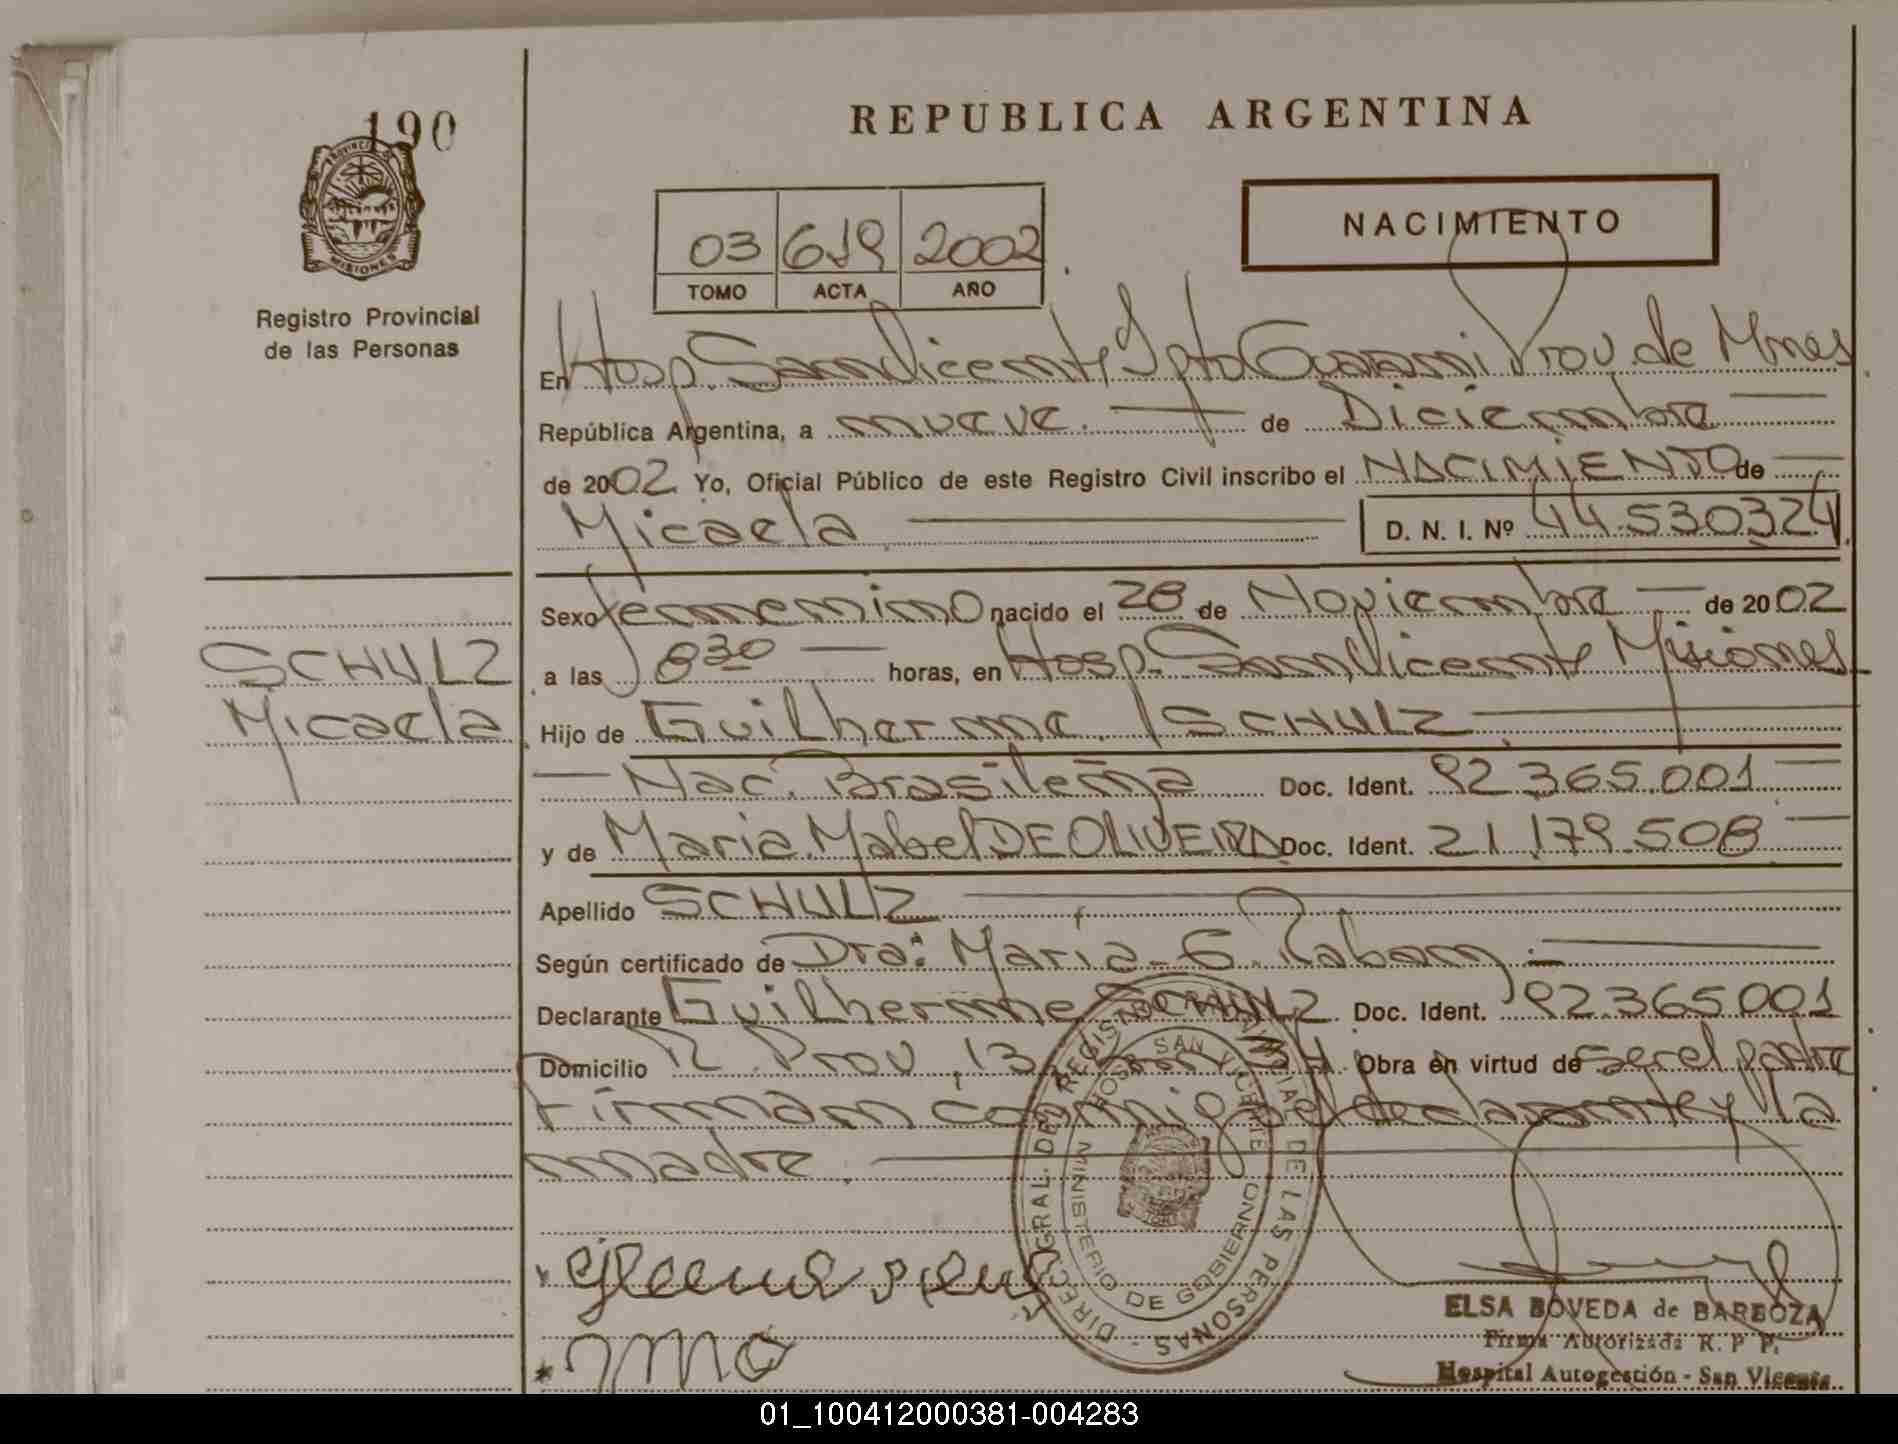 190
PROVINCIA DE
MISIONES
Registro Provincial
de las Personas
SCHULZ
Micaela
REPUBLICA ARGENTINA
03 619 2002
TOMO ACTA AÑO
NACIMIENTO
En Hosp. San Vicente Dpto Guarani Prov. de Mnes
República Argentina, a nueve. de Diciembre
de 2002 Yo, Oficial Público de este Registro Civil inscribo el NACIMIENTO de
Micaela D. N. I. Nº 44.530324
Sexo femenino nacido el 28 de Noviembre de 2002
a las 8 30 horas, en Hosp. San Vicente Misiones
Hijo de Guilherme SCHULZ
Nac. Brasileña Doc. Ident. 92.365.001
y de Maria Mabel DE OLIVEIRA Doc. Ident. 21.179.508
Apellido SCHULZ
Según certificado de Dra: María E.
Declarante Guilherme SCHULZ Doc. Ident. 92.365.001
Domicilio R. Prov. 13 Obra en virtud de ser el padre
Firman conmigo el declarante y la
madre.
DIREC. GRAL. DEL REGISTRO PROVINCIAL DE LAS PERSONAS -
HOSP. SAN VICENTE
MINISTERIO DE GOBIERNO
ELSA BOVEDA de BARBOZA
Firma Autorizada R. P. P.
Hospital Autogestión - San Vicente
01_100412000381-004283